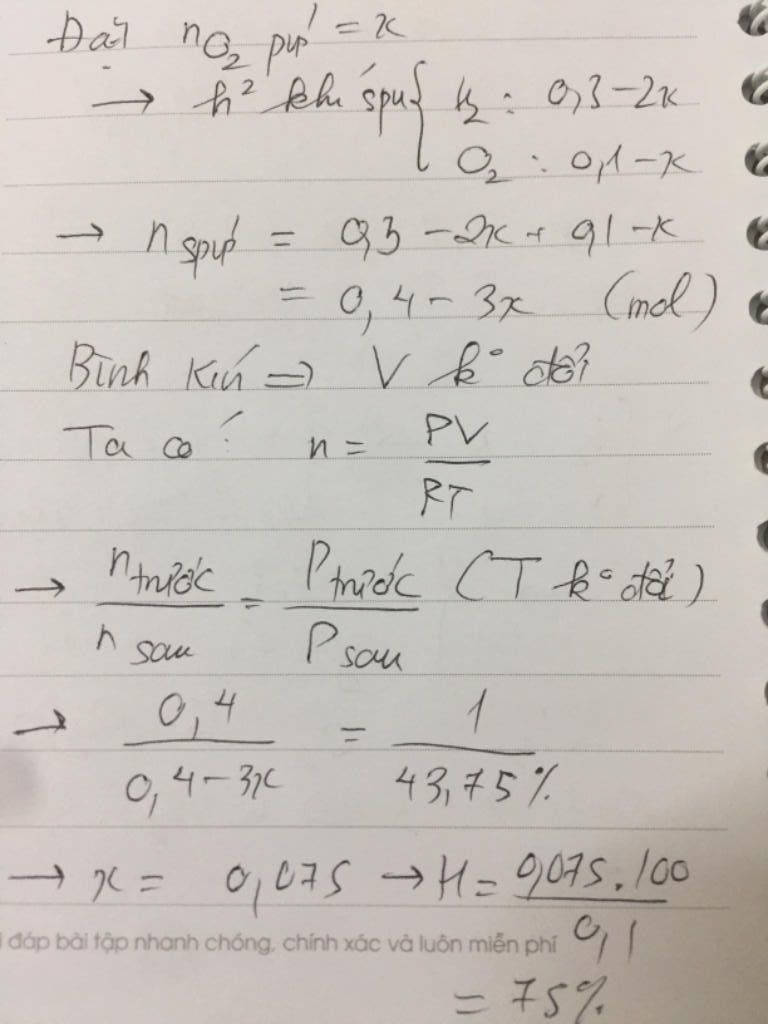 Đặt nO₂ pứ = x
→ h² khí spu { H₂ : 0,3-2x
O₂ : 0,1-x
→ n spứ = 0,3 - 2x + 0,1 - x
= 0,4 - 3x (mol)
Bình kín => V k° đổi
Ta có: n = PV/RT
→ n trước / n sau = P trước / P sau (T k° đổi)
→ 0,4 / 0,4-3x = 1 / 43,75%
→ x = 0,075 → H = 0,075.100 / 0,1
i đáp bài tập nhanh chóng, chính xác và luôn miễn phí
= 75%